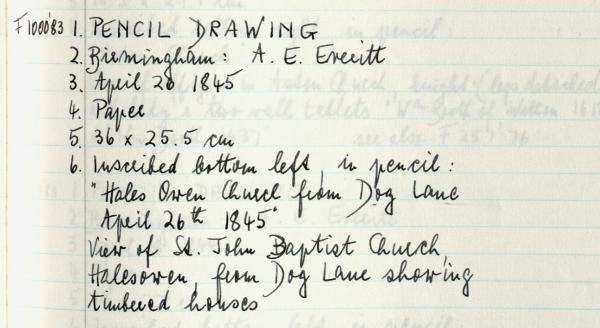 F1000'83 1. PENCIL DRAWING
2. Birmingham: A. E. Everitt
3. April 26 1845
4. Paper
5. 36 x 25.5 cm
6. Inscribed bottom left, in pencil:
"Hales Owen Church from Dog Lane
April 26th 1845"
View of St. John Baptist Church,
Halesowen, from Dog Lane showing
timbered houses